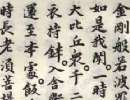 金剛般若波
如是我聞。一時
大比丘衆千二
衣持鉢。入舍
還至本處。飯
時長老須菩